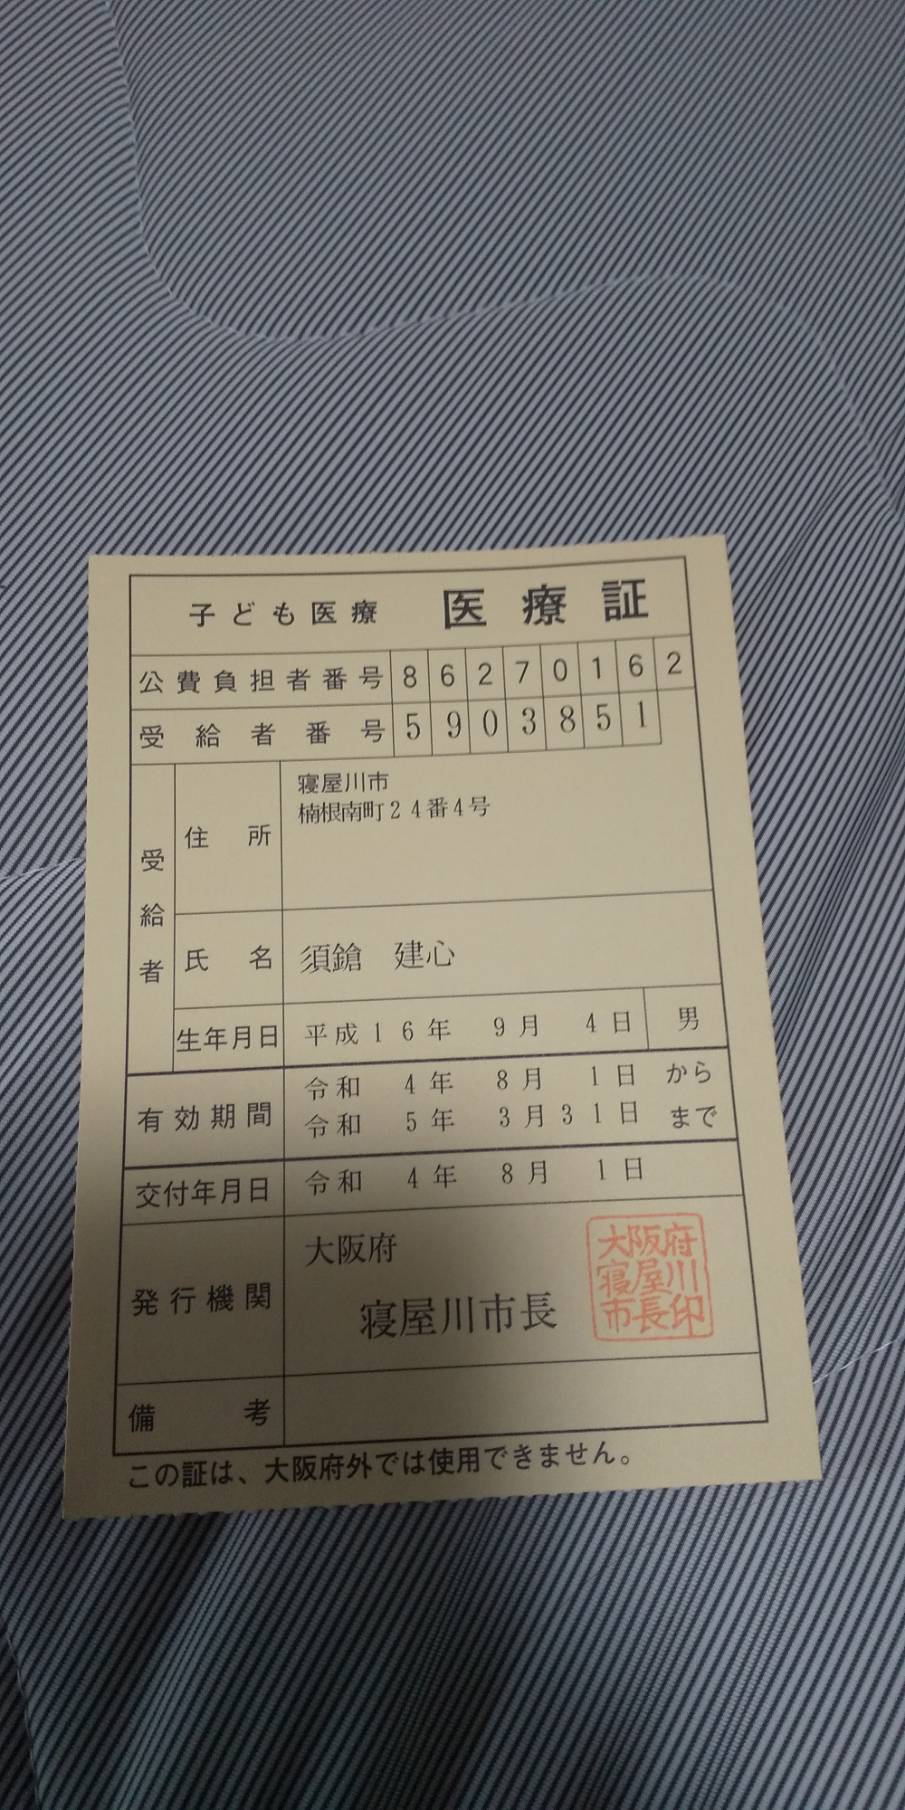 子ども医療 医療証
公費負担者番号 86270162
受給者番号 5903851
受給者
住所
寝屋川市
楠根南町24番4号
氏名 須鎗 建心
生年月日 平成16年 9月 4日 男
有効期間
令和 4年 8月 1日 から
令和 5年 3月31日 まで
交付年月日 令和 4年 8月 1日
発行機関
大阪府
寝屋川市長
大阪府
寝屋川
市長印
備考
この証は、大阪府外では使用できません。